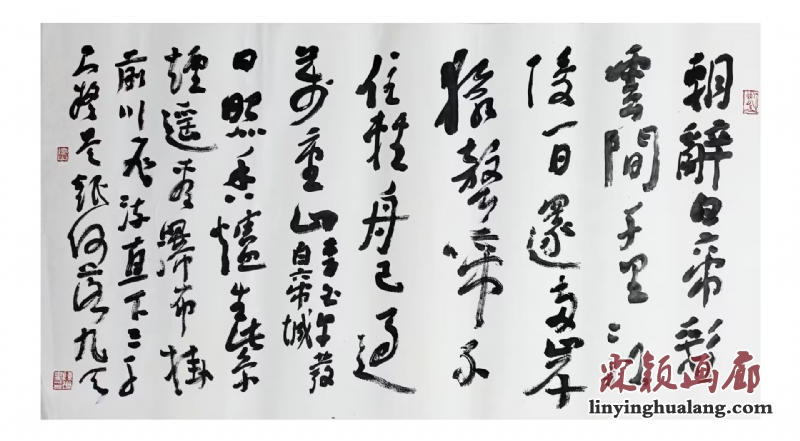 朝辭白帝彩
雲間千里江
陵一日還兩岸
猿聲啼不
住輕舟已過
萬重山
發
白帝城
日照香爐生紫
煙遙看瀑布掛
前川飛流直下三千
尺疑是銀河落九天
霖颖画廊
linyinghualang.com